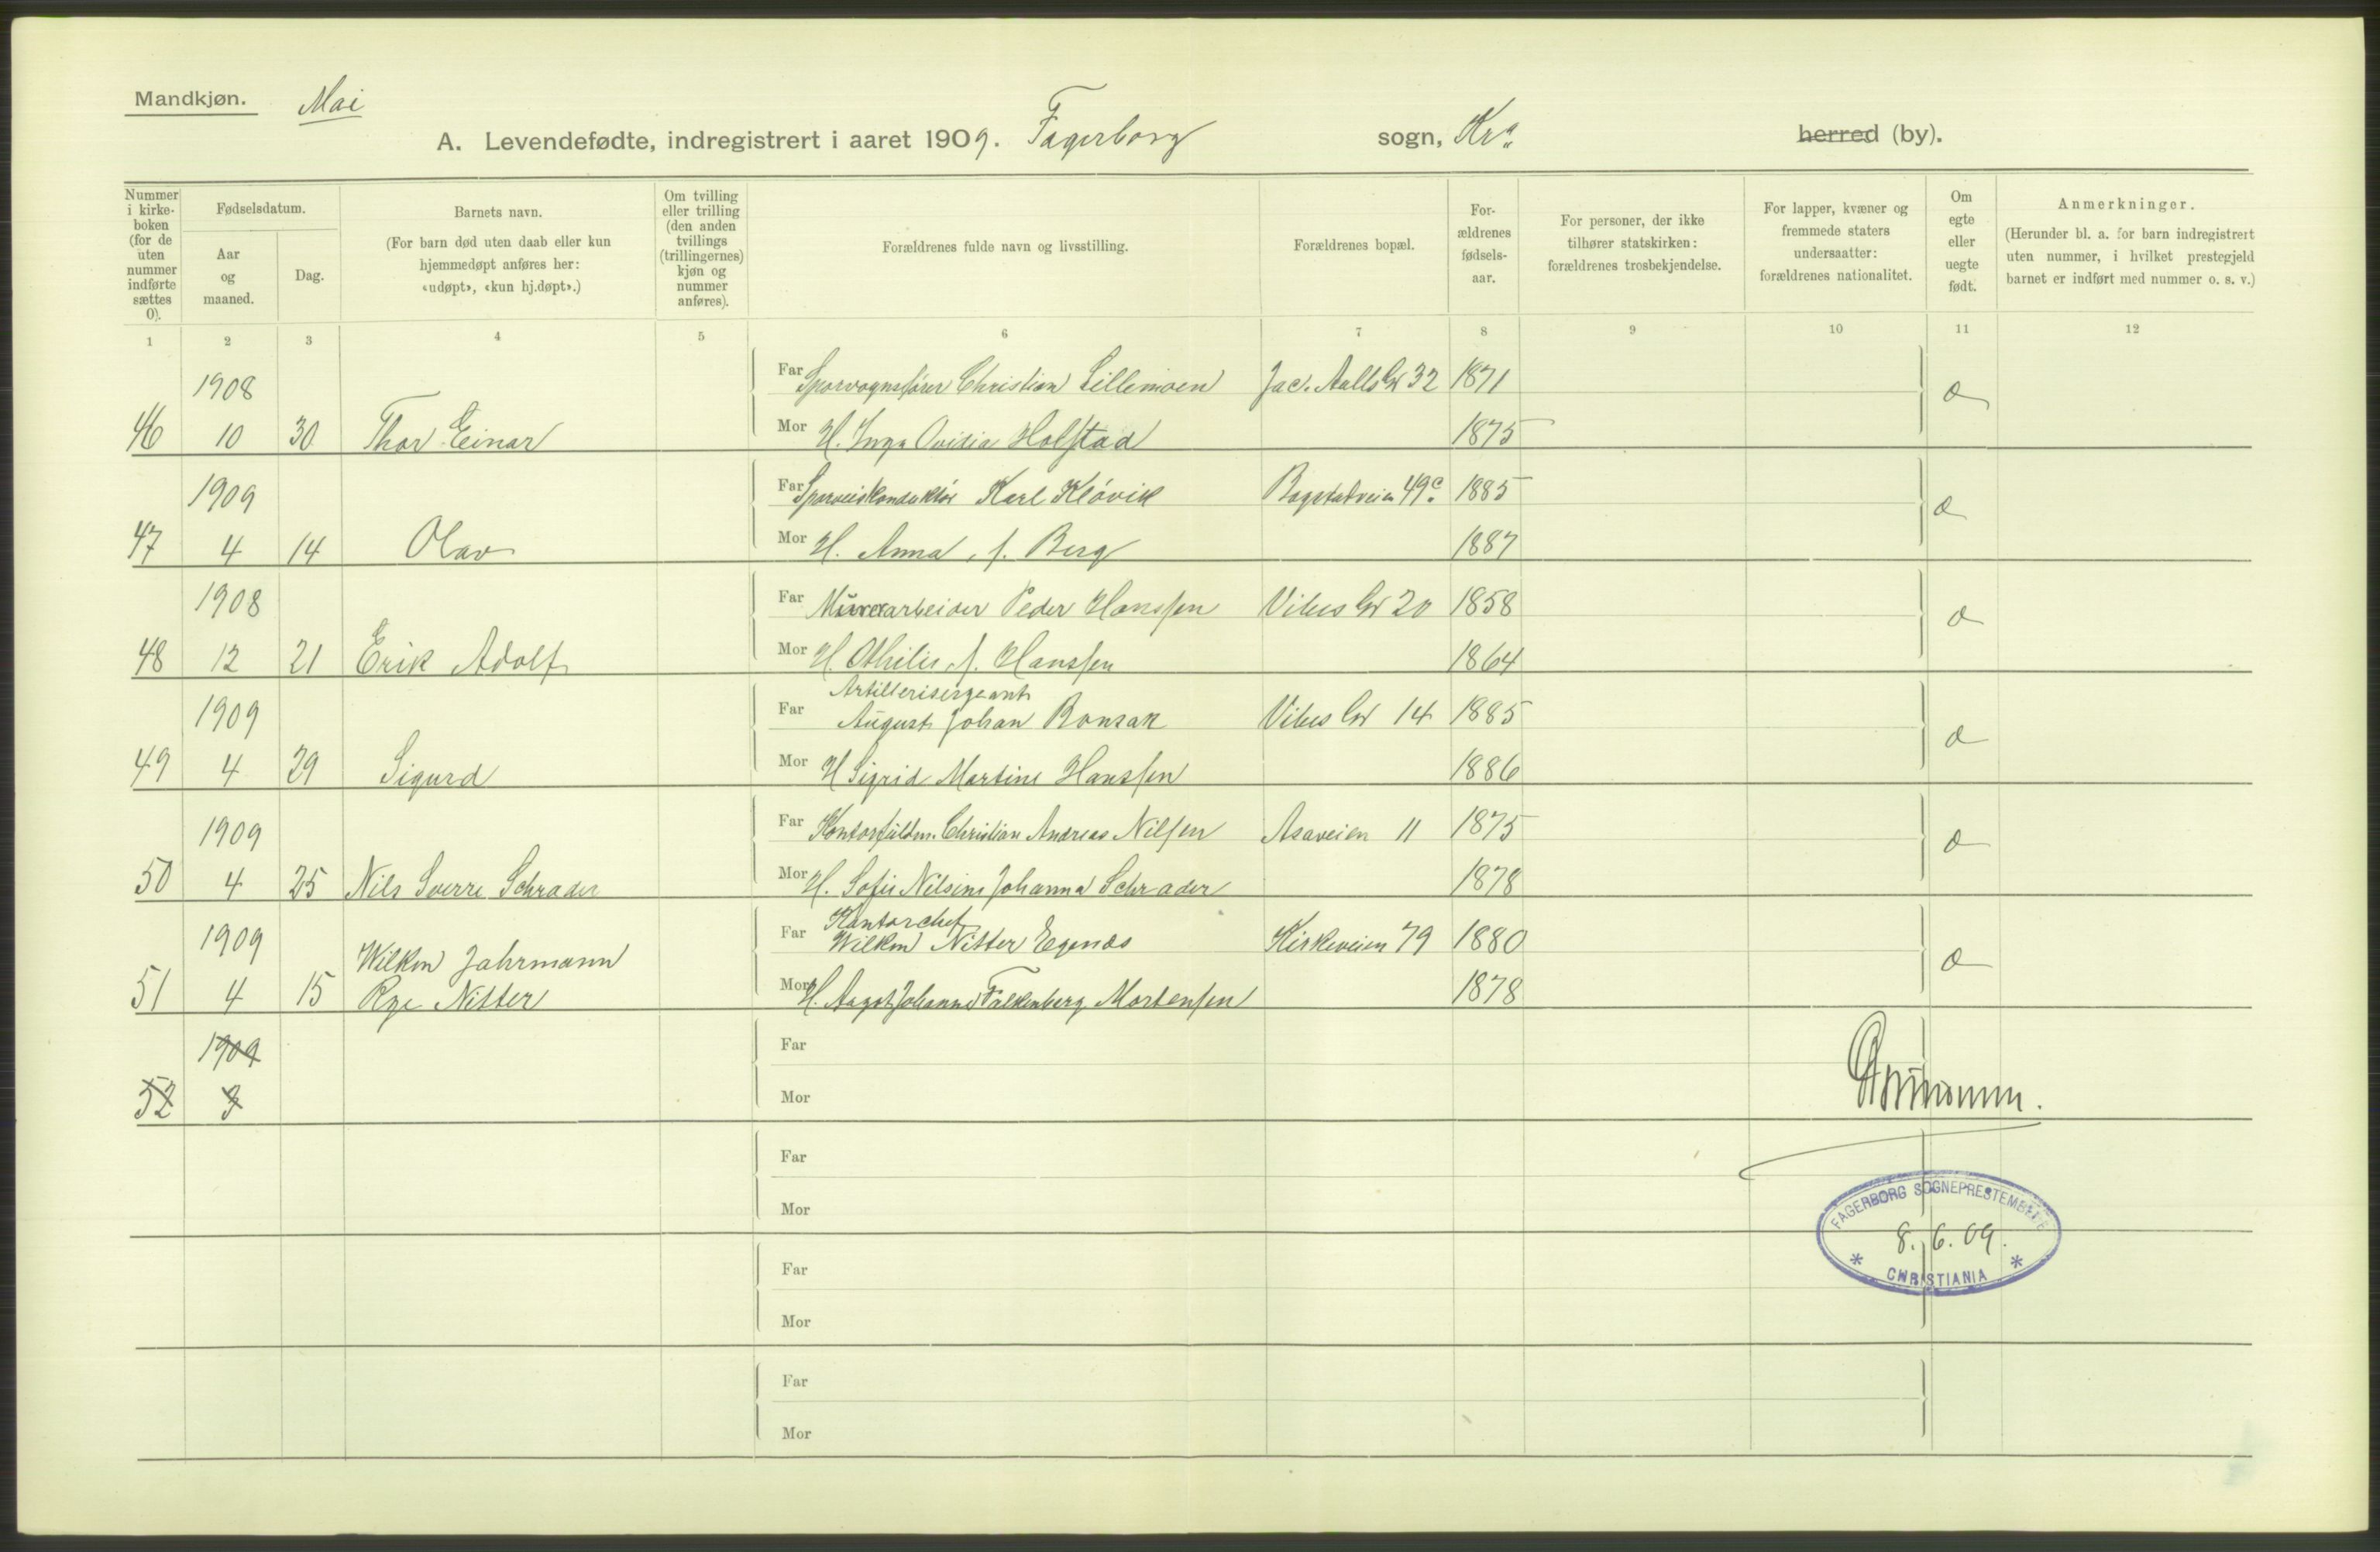 Mandkjøn. Mai
A. Levendefødte, indregistrert i aaret 1909. Fagerborg sogn, Kra herred (by).
Nummer i kirkeboken (for de uten nummer indførte sættes 0).
Fødselsdatum.
Aar og maaned.
Dag.
Barnets navn.
(For barn død uten daab eller kun hjemmedøpt anføres her: «udøpt», «kun hj.døpt».)
Om tvilling eller trilling (den anden tvillings (trillingernes) kjøn og nummer anføres).
Forældrenes fulde navn og livsstilling.
Forældrenes bopæl.
For-ældrenes fødsels-aar.
For personer, der ikke tilhører statskirken: forældrenes trosbekjendelse.
For lapper, kvæner og fremmede staters undersaatter: forældrenes nationalitet.
Om egte eller uegte født.
Anmerkninger.
(Herunder bl. a. for barn indregistrert uten nummer, i hvilket prestegjeld barnet er indført med nummer o. s. v.)
1 2 3 4 5 6 7 8 9 10 11 12
1908 Far Sporvognsfører Christian Lillemoen Jac. Aalls Gd 32 1871
46 10 30 Thor Einar Mor H. Inga Ovidia Holstad 1875
1909 Far Sporveiskonduktør Karl Kløvik Bogstadveien 49c. 1885
47 4 14 Olav Mor H. Anna, f. Berg 1887
1908 Far Murerarbeider Peder Hanssen Vibes Gd 20 1858
48 12 21 Erik Adolf Mor H. Othilie f. Hanssen 1864
Artillerisergeant
1909 Far August Johan Bonsak Vibes Gd 14 1885
49 4 29 Sigurd Mor H Sigrid Martine Hanssen 1886
1909 Far Kontorfuldm. Christian Andreas Nilsen Asaveien 11 1875
50 4 25 Nils Sverre Schrader Mor H. Sofie Nilsine Johanna Schrader 1878
Kontorchef
1909 Far Wilken Nitter Egenæs Kirkeveien 79 1880
Wilken Jahrmann
51 4 15 Rye Nitter Mor H. Aagot Johanne Falkenberg Mortensen 1878
1909 Far
52 3 Mor
Far
Mor
FAGERBORG SOGNEPRESTEMBEDE
8. 6. 09.
CHRISTIANIA
Far
Mor
Far
Mor